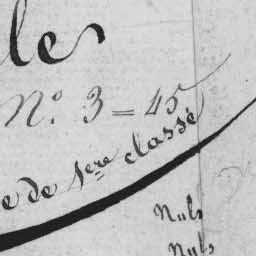 les
N.º 3 = 45
e de 1ere classe
Nuls
Nuls